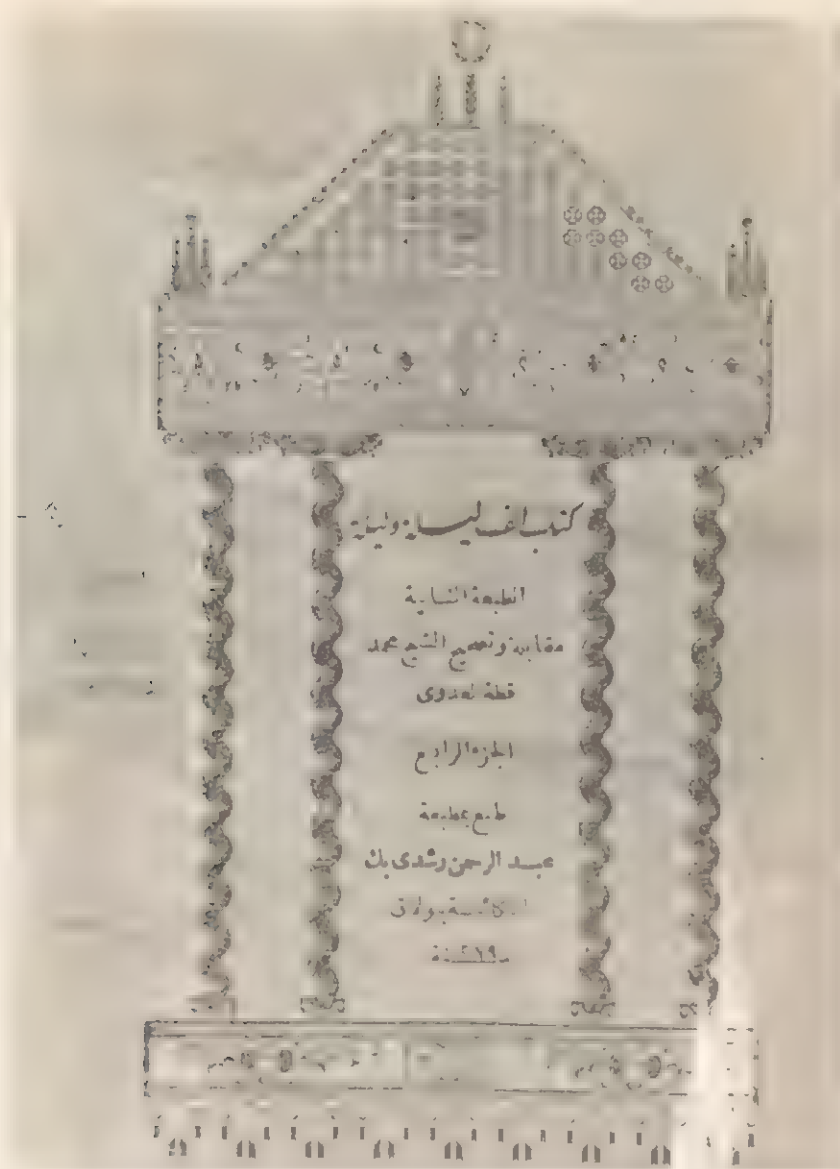 كتاب الف ليلة وليلة
الطبعة الثانية
مقابلة وتصحيح الشيخ محمد
قطة العدوى
الجزء الرابع
طبع بمطبعة
عبد الرحمن رشدى بك
الكائنة ببولاق
سنة